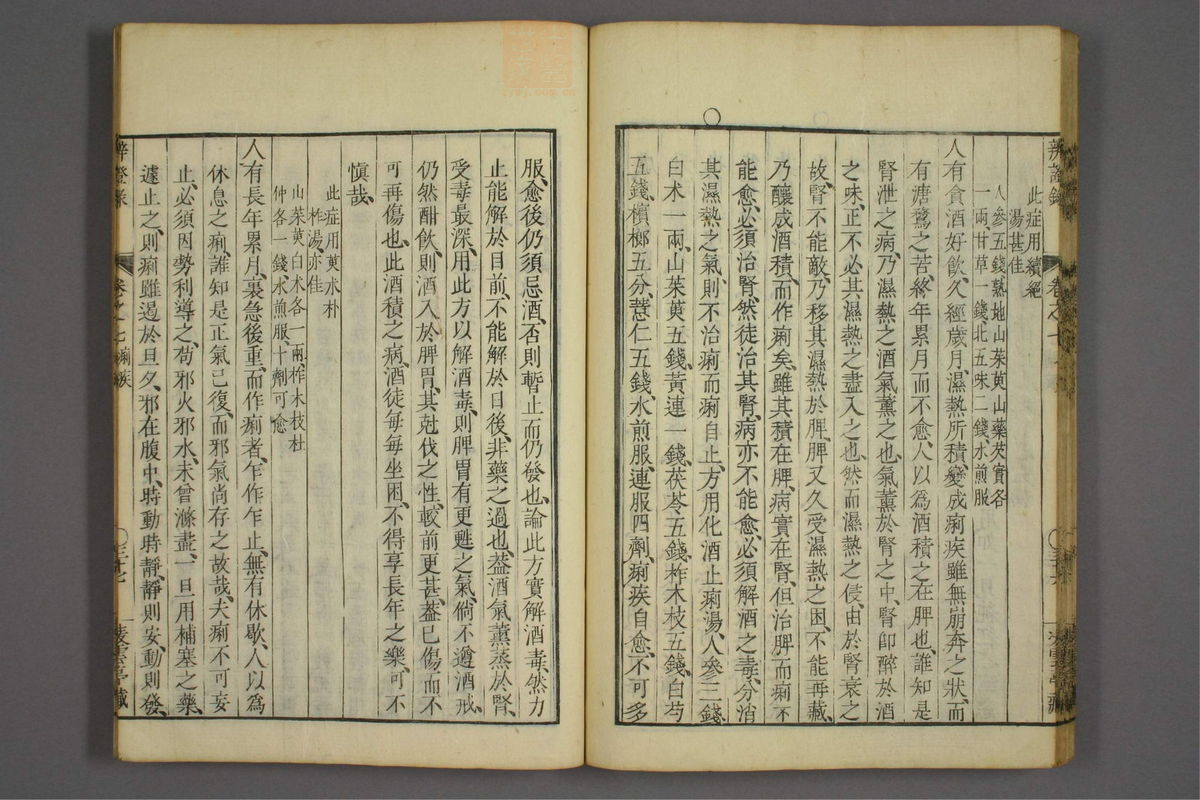 此症用續絕
湯甚佳
人參五錢熟地山茱萸山藥芡實各
一兩甘草一錢北五味二錢水煎服
人有貪酒好飲久經歲月濕熱所積變成痢疾雖無崩奔之狀而
有溏鶩之苦終年累月而不愈人以為酒積之在脾也誰知是
腎泄之病乃濕熱之酒氣薰之也氣薰於腎之中腎卽醉於酒
之味正不必其濕熱之盡入之也然而濕熱之侵由於腎衰之
故腎不能敵乃移其濕熱於脾脾又久受濕熱之困不能再藏
乃釀成酒積而作痢矣雖其積在脾病實在腎但治脾而痢不
能愈必須治腎然徒治其腎病亦不能愈必須解酒之毒分消
其濕熱之氣則不治痢而痢自止方用化酒止痢湯人參三錢
白术一兩山茱萸五錢黃連一錢茯苓五錢柞木枝五錢白芍
五錢檳榔五分薏仁五錢水煎服連服四劑痢疾自愈不可多
服愈後仍須忌酒否則暫止而仍發也論此方實解酒毒然力
止能解於目前不能解於日後非藥之過也葢酒氣薰蒸於腎
受毒最深用此方以解酒毒則脾胃有更甦之氣倘不遵酒戒
仍然酣飲則酒入於脾胃其尅伐之性較前更甚葢已傷而不
可再傷也此酒積之病酒徒每每坐困不得享長年之樂可不
慎哉
此症用萸术朴
柞湯亦佳
山茱萸白术各一兩柞木枝杜
仲各一錢水煎服十劑可愈
人有長年累月裏急後重而作痢者乍作乍止無有休歇人以為
休息之痢誰知是正氣已復而邪氣尚存之故哉夫痢不可妄
止必須因勢利導之苟邪火邪水未曾滌盡一旦用補塞之藥
遽止之則痢雖遏於旦夕邪在腹中時動時靜靜則安動則發
辨證錄
卷之七
痢疾